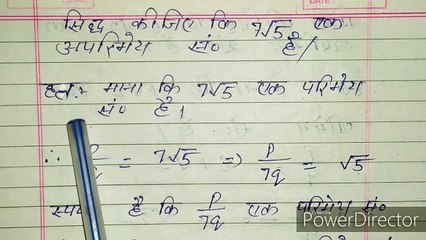 सिद्ध कीजिए कि 7√5 एक
अपरिमेय सं० है।
हल:- माना कि 7√5 एक परिमेय
सं० है।
∴ P/q = 7√5 => P/7q = √5
है कि P/7q एक परिमेय सं०
PowerDirector